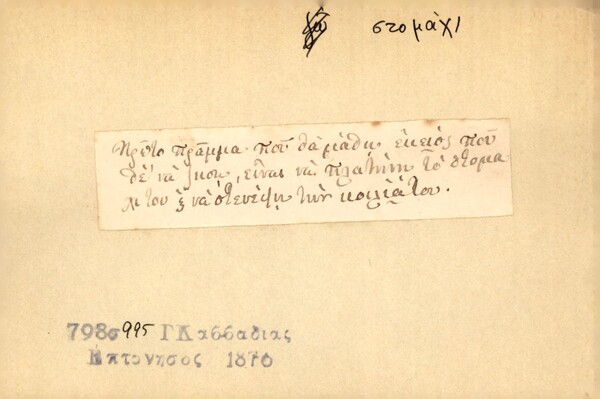 στομάχι
Πρῶτο πρᾶμμα ποῦ θὰ μάθῃ ἐκειός ποῦ
θὲ νὰ ζήσῃ, εἶναι νὰ πλατήνῃ τὸ στομα
χι του ξ νὰ στενέψῃ τὴν κοιλιὰ του.
798σ995 Γ Καββαδιας
Επτονησος 1876